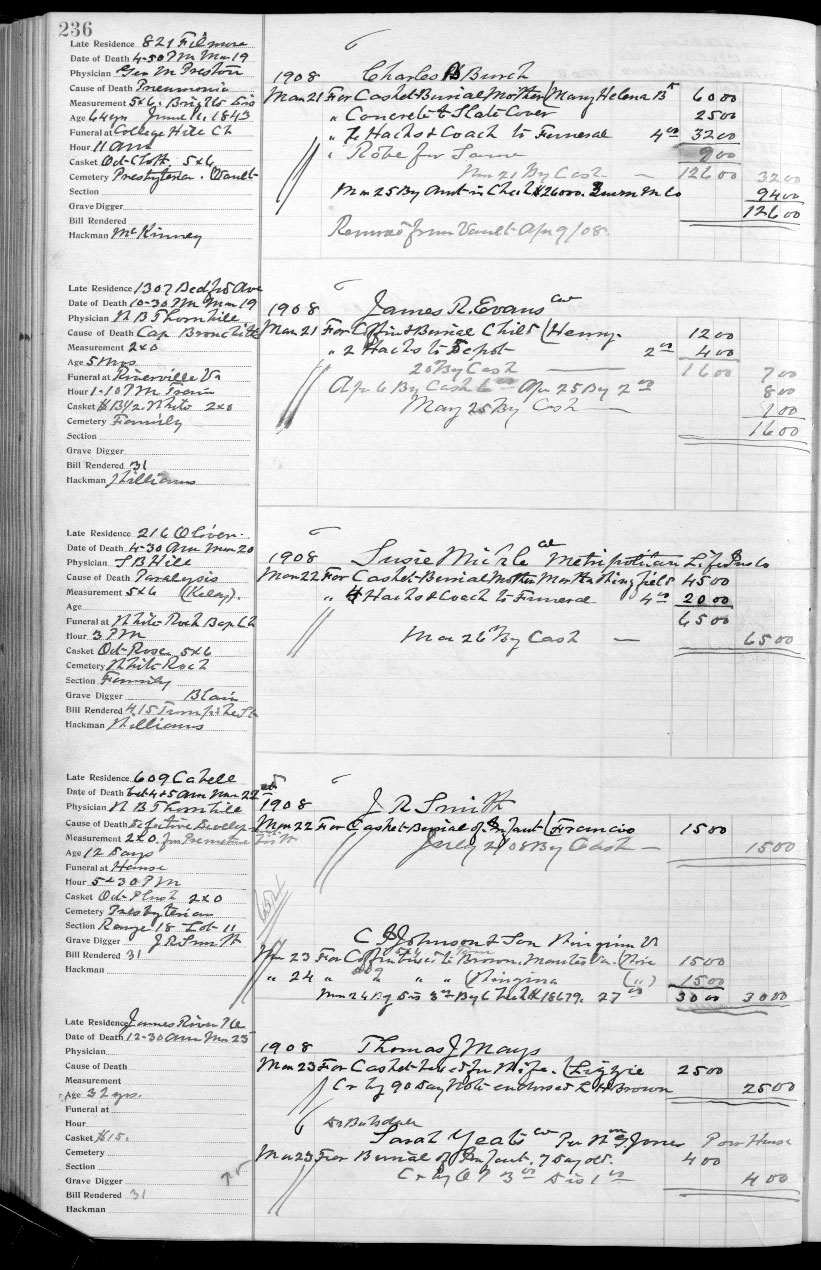 236
Late Residence 821 Filmore
Date of Death 4-50 PM Mar 19
Physician Geo M Preston
Cause of Death Pneumonia
Measurement 5x6. Brights Dis
Age 64 yrs June 16, 1843
Funeral at College Hill Ch
Hour 11 am
Casket Oct-Cloth 5x6
Cemetery Presbyterian. Vault
Section
Grave Digger
Bill Rendered
Hackman McKinney
1908 Charles B Burch
Mar 21 For Casket & Burial Mother (Mary Helena B 60 00
" Concrete & Slate Cover 25 00
" Hacks & Coach to Funeral 4 00 32 00
" Robe for Same 9 00
Mar 21 By Cash — 126 00 32 00
Mar 25 By Amt in Check 94 00
126 00
Removed from Vault Apr 9/08.
Late Residence 1307 Bedford Ave
Date of Death 10-30 PM Mar 19
Physician W B Thornhill
Cause of Death Cap Bronchitis
Measurement 2x0
Age 5 Mos
Funeral at Riverville Va
Hour 1-10 PM Train
Casket White 2x0
Cemetery Family
Section
Grave Digger
Bill Rendered 31
Hackman Williams
1908 James R. Evans col
Mar 21 For Coffin & Burial Child (Henry. 12 00
" 2 Hacks to Depot 2 00 4 00
20 By Cash — 16 00 7 00
Apr 6 By Cash 6 00 Apr 25 By 2 00 8 00
May 25 By Cash — 1 00
16 00
Late Residence 216 Oliver
Date of Death 4-30 am Mar 20
Physician S B Hill
Cause of Death Paralysis
Measurement 5x6
Age
Funeral at White Rock Bap Ch
Hour 3 PM
Casket Oct-Rose. 5x6
Cemetery White Rock
Section Family
Grave Digger Blair
Bill Rendered 415
Hackman Williams
1908 Susie col Metropolitan Life Ins Co
Mar 22 For Casket & Burial Mother 45 00
" 4 Hacks & Coach to Funeral 4 00 20 00
65 00
Mar 26 By Cash — 65 00
Late Residence 609 Cabell
Date of Death 4 & 5 am Mar 22
Physician W B Thornhill
Cause of Death Defective Develop
Measurement 2x0. from Premature Birth
Age 12 Days
Funeral at House
Hour 5 & 30 PM
Casket Oct-Plush 2x0
Cemetery Presbyterian
Section Range 18 Lot 11
Grave Digger J R Smith
Bill Rendered 31
Hackman
1908 J R Smith
Mar 22 For Casket & Burial of Infant (Francis 15 00
July 2/08 By Cash — 15 00
C J Johnson & Son Wingina Va
Mar 23 For Coffin 15 00
" 24 " " " " (Wingina (") 15 00
Mar 24 By Dis 3 00 By Check 27 00 30 00 30 00
Late Residence James River
Date of Death 12-30 am Mar 23
Physician
Cause of Death
Measurement
Age 32 yrs.
Funeral at
Hour
Casket $15.
Cemetery
Section
Grave Digger
Bill Rendered 31
Hackman
1908 Thomas J Mays
Mar 23 For Casket for Wife. (Lizzie 25 00
Cr by 90 Day Note endorsed L H Brown 25 00
Sarah Yeats col Per Jones Poor House
Mar 23 For Burial of Infant. 7 Day old. 4 00
Cr by 3 00 Dis 1 00 4 00